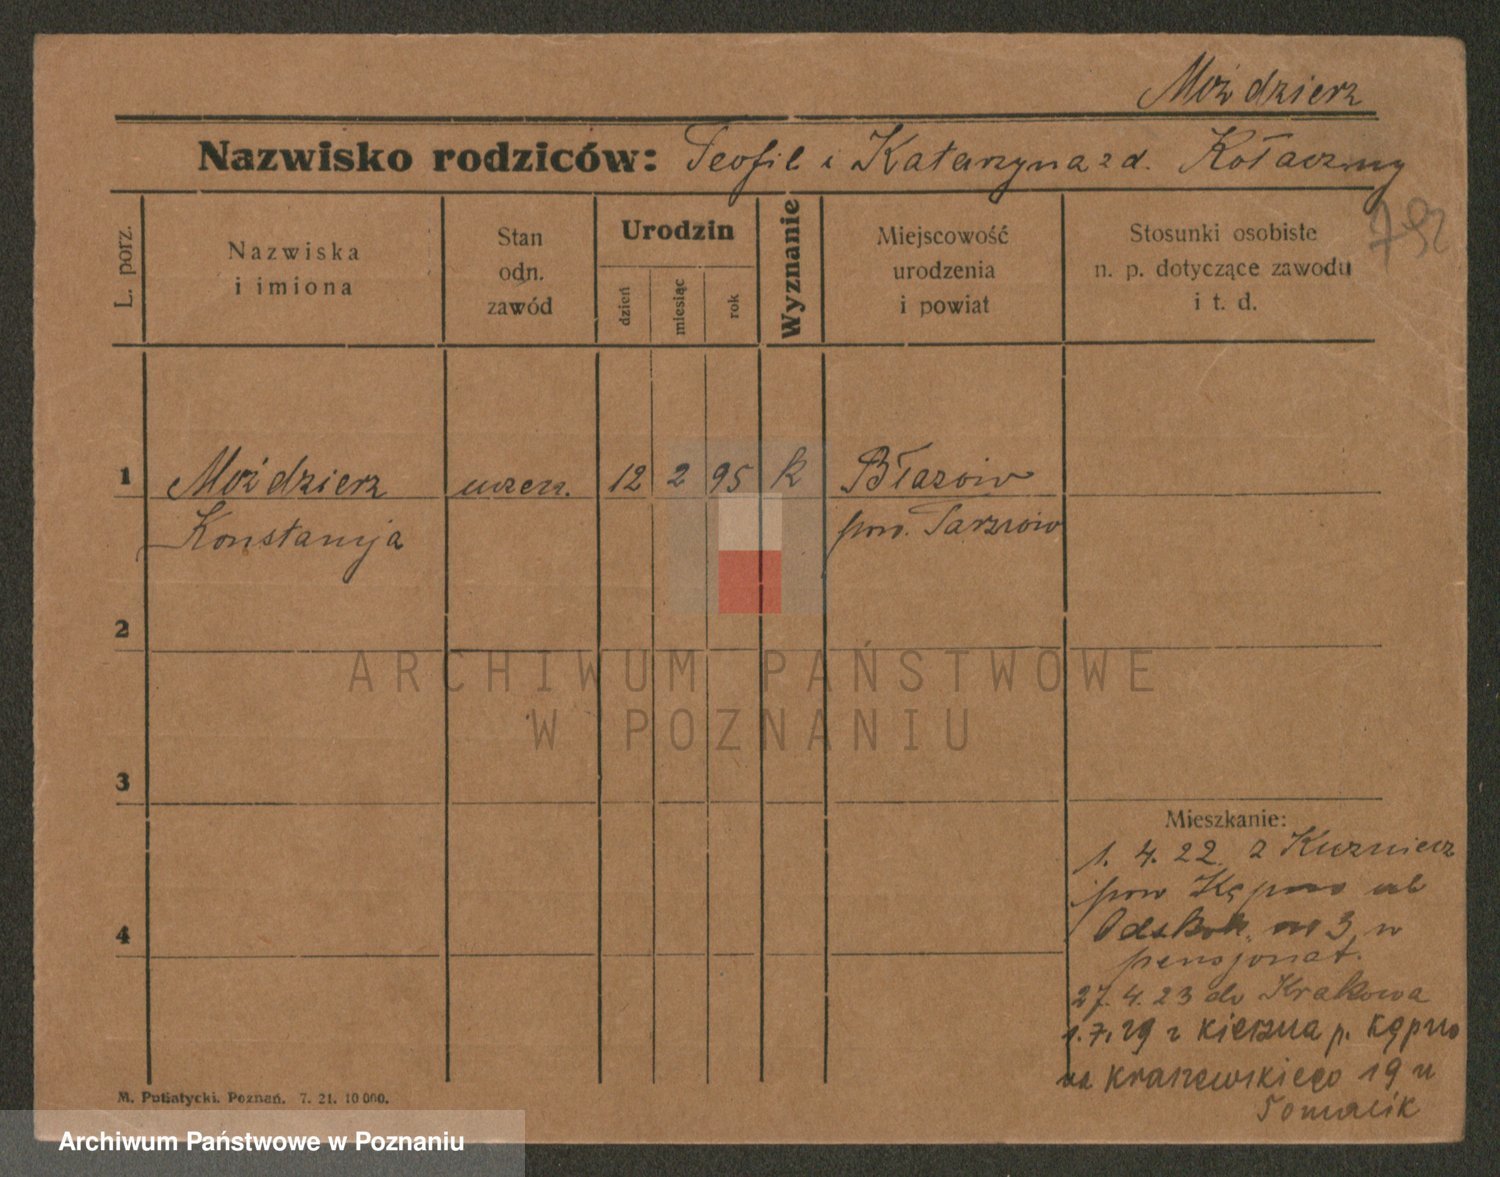 Moździerz
Nazwisko rodziców: Teofil i Katarzyna z d. Kołaczny
792
L. porz.
Nazwiska
i imiona
Stan
odn.
zawód
Urodzin
dzień
miesiąc
rok
Wyznanie
Miejscowość
urodzenia
i powiat
Stosunki osobiste
n. p. dotyczące zawodu
i t. d.
1 Moździerz 12 2 95 k Błazów
Konstancja pow.
2
3
4
Mieszkanie:
1. 4. 22 z
pow Kępno
3 w
pensjonat.
27. 4. 23 do Krakowa
1. 7. 29 z p. Kępno
na Kraszewskiego 19 u
Tomalik
M. Putiatycki. Poznań. 7. 21. 10 000.
ARCHIWUM PAŃSTWOWE
W POZNANIU
Archiwum Państwowe w Poznaniu